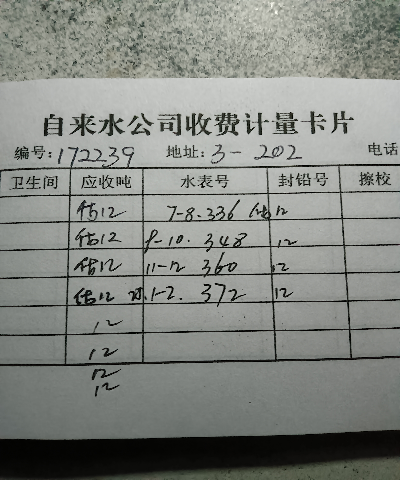 自来水公司收费计量卡片
编号:172239 地址:3-202 电话
卫生间 应收吨 水表号 封铅号 擦校
估12 7-8.336 估12
估12 9-10.348 12
估12 11-12 360 12
估12 1-2.372 12
12
12
12
12